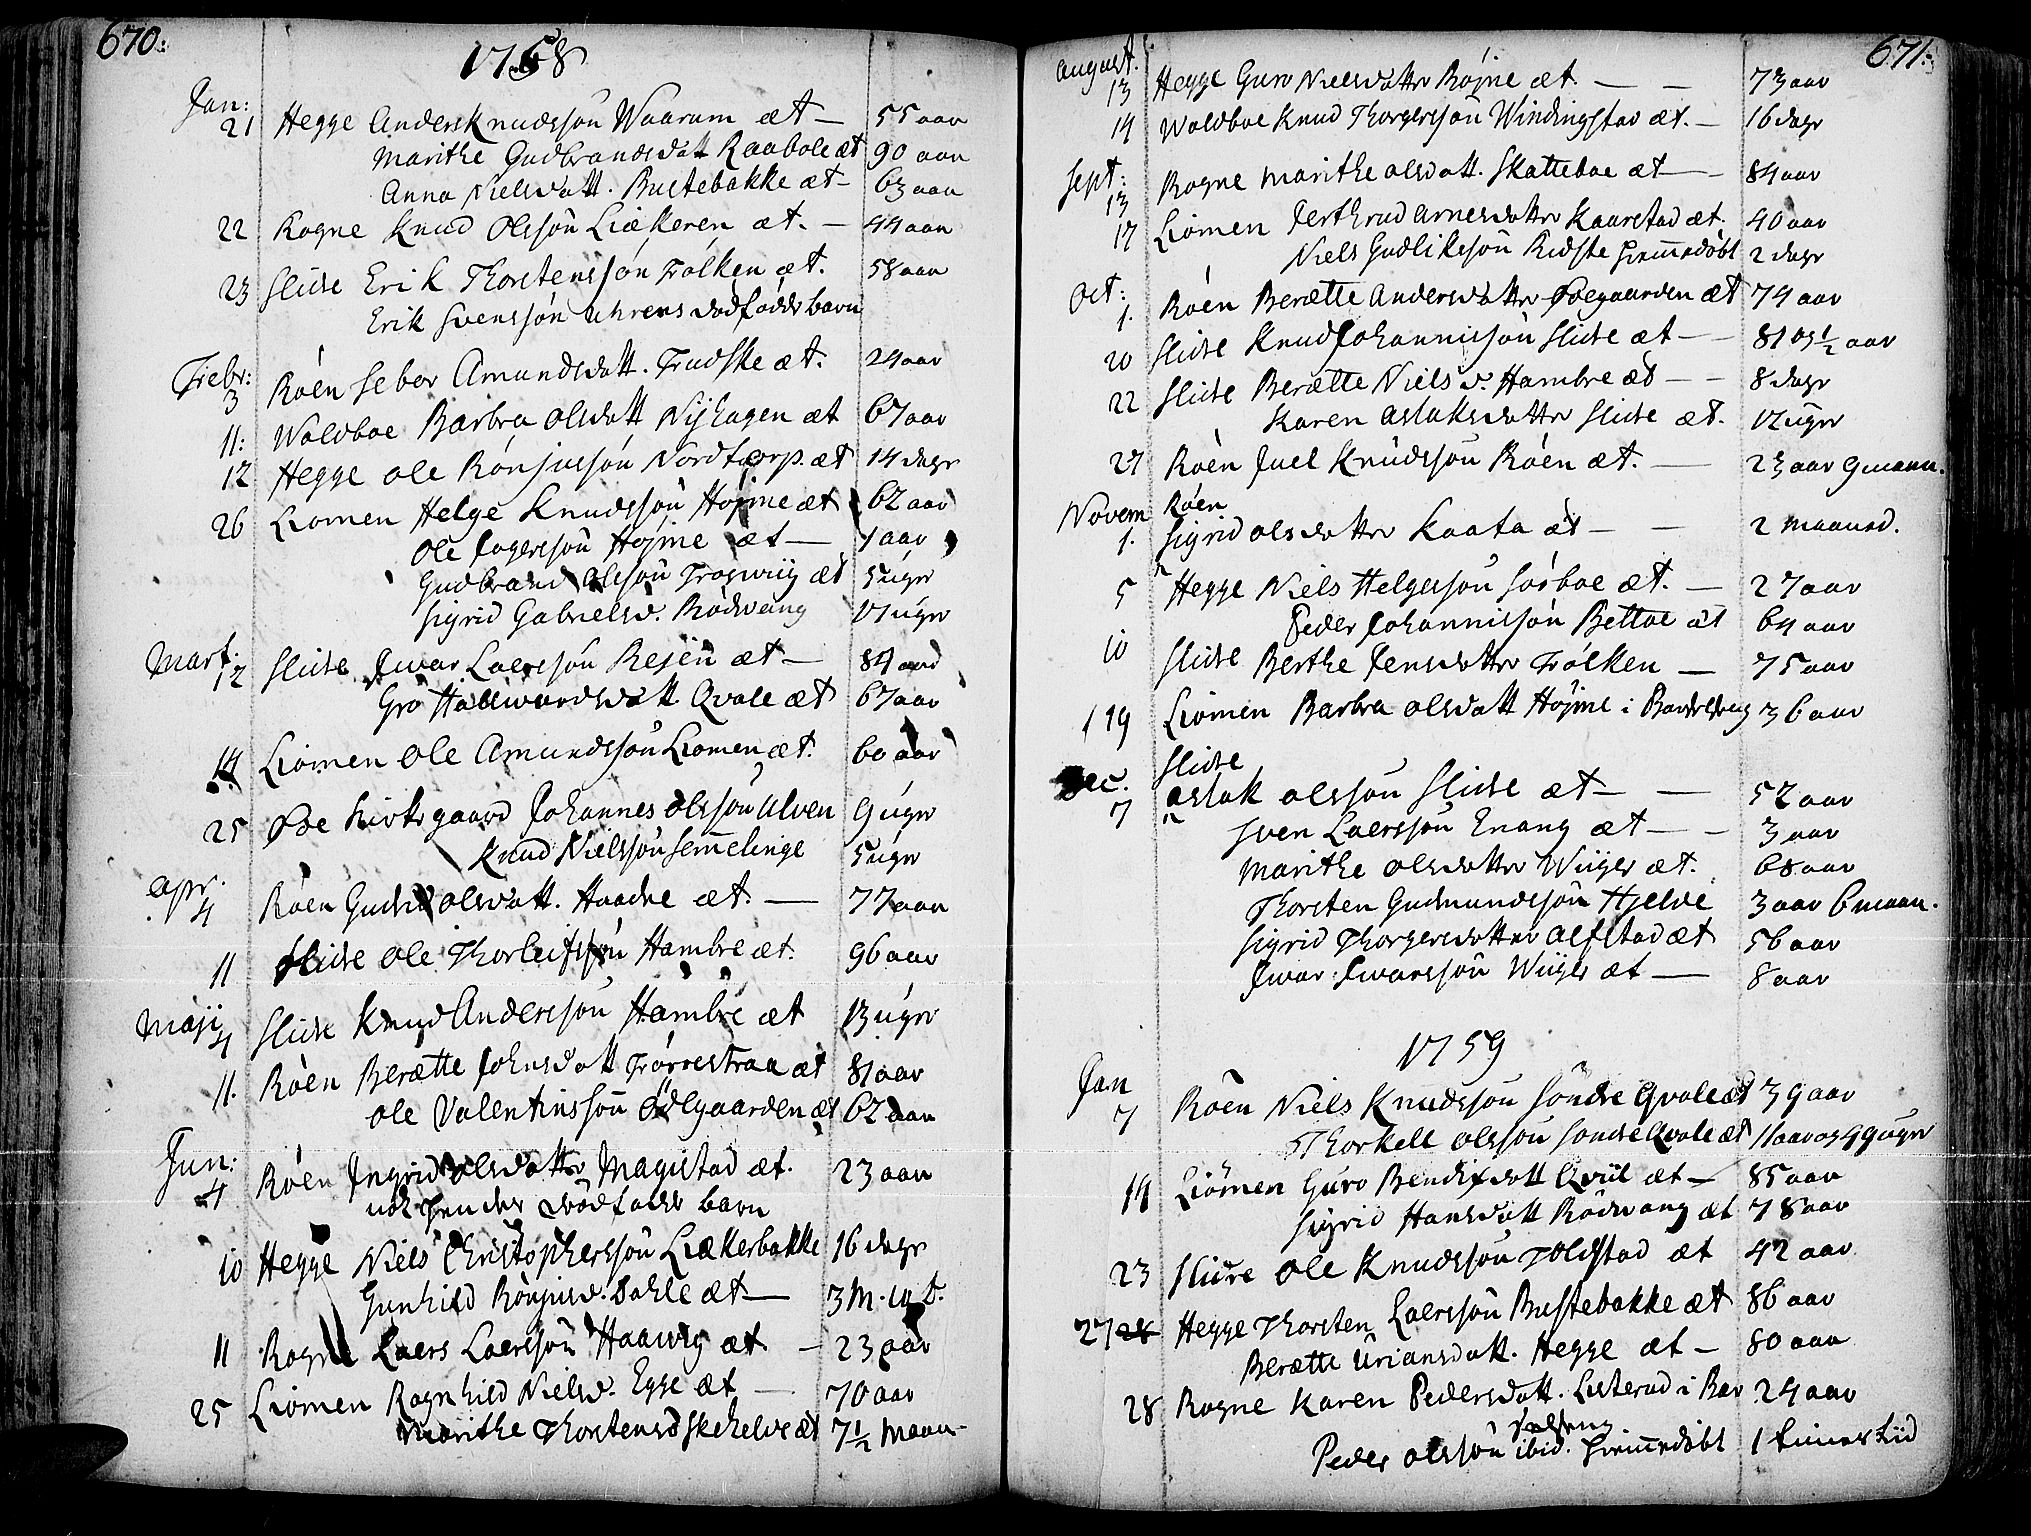 670.
1758
Jan:
21 Hegge Anders Knudssøn Waarum æt — 55 aar
Marithe Gudbrandsdatt Raabole æt 90 aar
Anna Nielsdatt. Bustebakke æt — 63 aar
22 Rogne Knud Olssøn Liækeren æt. — 44 aar
23 Slidre Erik Thorstenssøn Følken æt. 58 aar
Erik Svenssøn uhrens dødfødde barn
Febr:
3 Røen Sebor Amundsdatt. Trudske æt. 24 aar
11: Woldboe Barbra Olsdatt Nyhagen æt 67 aar
12 Hegge Ole Rønjussøn Nordtorp. æt 14 dage
26 Liomen Helge Knudssøn Højme æt 62 aar
Ole Jogerssøn Højme æt — 1 aar
Gudbrand Olssøn æt 5 uger
Sigrid Gabrielsd. Rødwang uger
Mart.
12 Slidre Iwar Laerssøn Rejen æt — 84 aar
Gro Hallwordsdatt Qvale æt 67 aar
14 Liomen Ole Amundssøn Liomen æt. 60 aar
25 Øde Kirkegaard Johannes Olssøn Ulven 9 uger
Knud Nielssøn Semmelinge 5 uger
Apr.
4 Røen Gudri Olsdatt. Haadne æt. — 77 aar
11 Slidre Ole Thorleifssøn Hambre æt. 96 aar
Maji
4 Slidre Knud Anderssøn Hambre æt 13 uger
11. Røen Berætte Johnsdatt Førrestraa æt 81 aar
Ole Valentinssøn Ødegaarden æt 62 aar
Jun:
4 Røen Ingrid Olsdatter Magistad æt. 23 aar
dødfødde barn
10 Hegge Niels Christopherssøn Liækerbakke 16 dage
Gunhild Rønjusd. Dahle æt — 3 M.
11 Rogne Laers Laerssøn Haawig æt — 23 aar
25 Liomen Ragnhild Nielsd. Egge æt — 70 aar
Marithe Thorstensd Skehelve æt 7½ Maan.
671.
August.
13 Hegge Guro Nielsdatter Røjne æt — — 73 aar
14 Woldboe Knud Thorgerssøn Windingstad æt. — 16 dage
Sept:
13 Rogne Marithe Olsdatt. Skatteboe æt — — 84 aar
17 Liomen Jerthrud Arnesdatter Kaarstad æt. 40 aar
Niels Gudlikssøn Ridste hiemmedøbt 2 dage
Oct:
1. Røen Berætte Andersdatter Ødegaarden æt 74 aar
20 Slidre Knud Johannissøn Slidre æt — — 81 og ½ aar
22 Slidre Berætte Niels d. Hambre æt — — 8 dage
Karen Aslaksdatter Slidre æt. uger
27 Røen Juel Knudssøn Røen æt. — 23 aar 9 maan.
Novem Røen
1. Sigrid Olsdatter Kaata æt — — 2 maaned.
5 Hegge Niels Helgessøn Sørboe æt. — 27 aar
Peder Johannissøn Bettoe æt 64 aar
10 Slidre Berthe Jensdatter Følken — 75 aar
19 Liomen Barbra Olsdatt Højme i 36 aar
Dec. Slidre
7 Aslak Olssøn Slidre æt — — 52 aar
Sven Laerssøn Enang æt — — 3 aar
Marithe Olsdatter Wiiger æt. 68 aar
Thorsten Gudmundssøn Hjelde 3 aar 6 maan.
Sigrid Thorgersdatter Alfstad æt 56 aar
Iwar Iwarssøn Wiiger æt — 8 aar
1759
Jan
7 Røen Niels Knudssøn Søndre Qvale æt 39 aar
Thorkell Olssøn Søndre Qvale æt 11 aar og 49 uger
14 Liomen Guro Bendixdatt Qviil æt — 85 aar
Sigrid Hansdatt Rødwang æt 78 aar
23 Slidre Ole Knudssøn Tolstad æt 42 aar
27 28 Hegge Thorsten Laerssøn Bustebakke æt 86 aar
Berætte Uriansdatt. Hegge æt — 80 aar
28 Rogne Karen Pedersdatt. Listerud i Bar 24 aar
Peder Olssøn ibid. hiemmedøbt 1 times tid